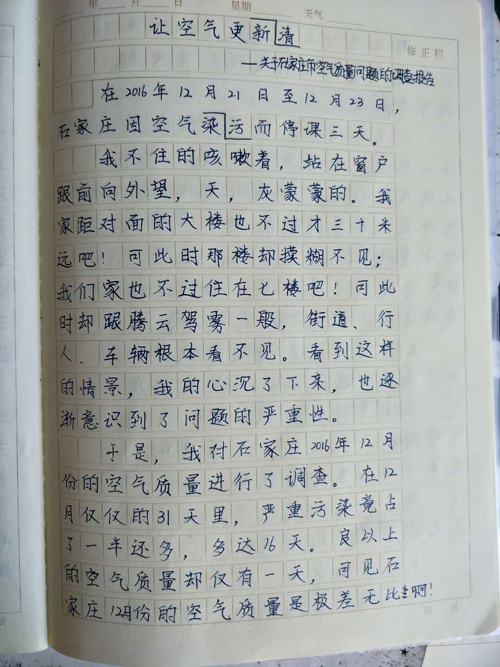 年 月 日 星期 天气
让空气更新清
修正栏
——关于石家庄市空气质量问题的调查报告
在2016年12月21日至12月23日，
石家庄因空气染污而停课三天。
我不住的咳嗽着，站在窗户
跟前向外望，天，灰蒙蒙的。我
家距对面的大楼也不过才三十米
远吧！可此时那楼却摸糊不见；
我们家也不过住在七楼吧！可此
时却跟腾云驾雾一般，街道、行
人、车辆根本看不见。看到这样
的情景，我的心沉了下来，也逐
渐意识到了问题的严重性。
于是，我对石家庄2016年12月
份的空气质量进行了调查。在12
月仅仅的31天里，严重污染竟占
了一半还多，多达16天。良以上
的空气质量却仅有一天，可见石
家庄12月份的空气质量是极差无比啊！